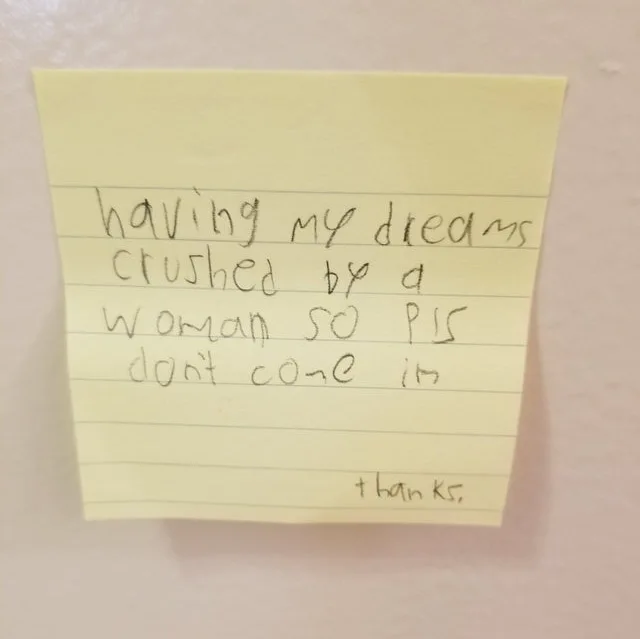 having my dreams
crushed by a
woman so pls
don't come in
thanks.